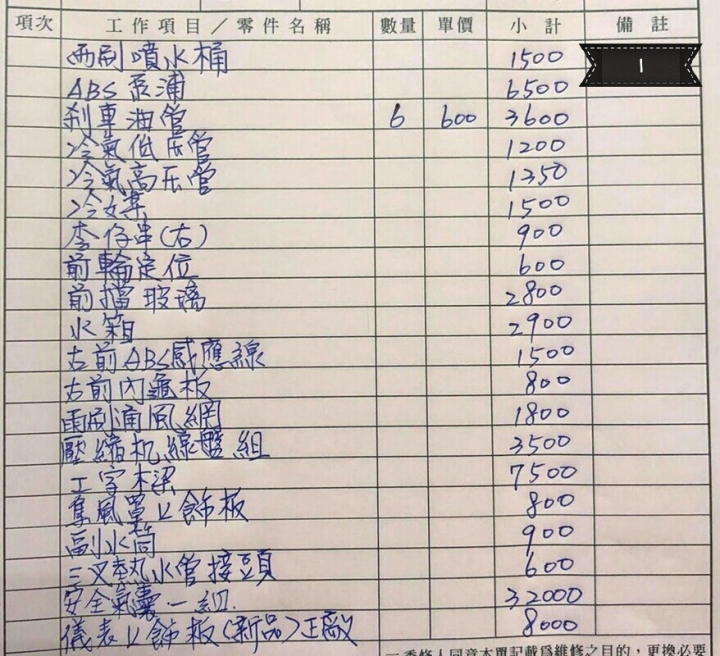 項次 工作項目／零件名稱 數量 單價 小計 備註
雨刷噴水桶 1500 I
ABS 泵浦 6500
刹車油管 6 600 3600
冷氣低压管 1200
冷氣高压管 1350
冷媒 1500
李仔串(右) 900
前輪定位 600
前擋玻璃 2800
水箱 2900
右前ABS感應線 1500
右前內龜板 800
雨刷通風網 1800
壓縮机線盤組 3500
工字本樑 7500
集風罩上飾板 800
副水筒 900
三叉熱水管接頭 600
安全氣囊一組. 32000
儀表上飾板(新品)正廠 8000
一.委修人同意本單記載爲維修之目的，更換必要